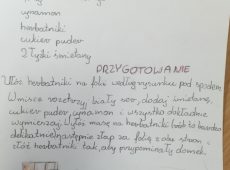 cynamon
herbatniki
cukier puder
2 łyżki śmietany
PRZYGOTOWANIE
Ułóż herbatniki na folii według rysunku pod spodem.
W misce rozetrzyj biały ser, dodaj śmietanę,
cukier puder, cynamon i wszystko dokładnie
wymieszaj. Wyłóż masę na herbatniki
delikatnie następnie złap za folię z obu stron i
złóż herbatniki tak, aby przypominały domek.